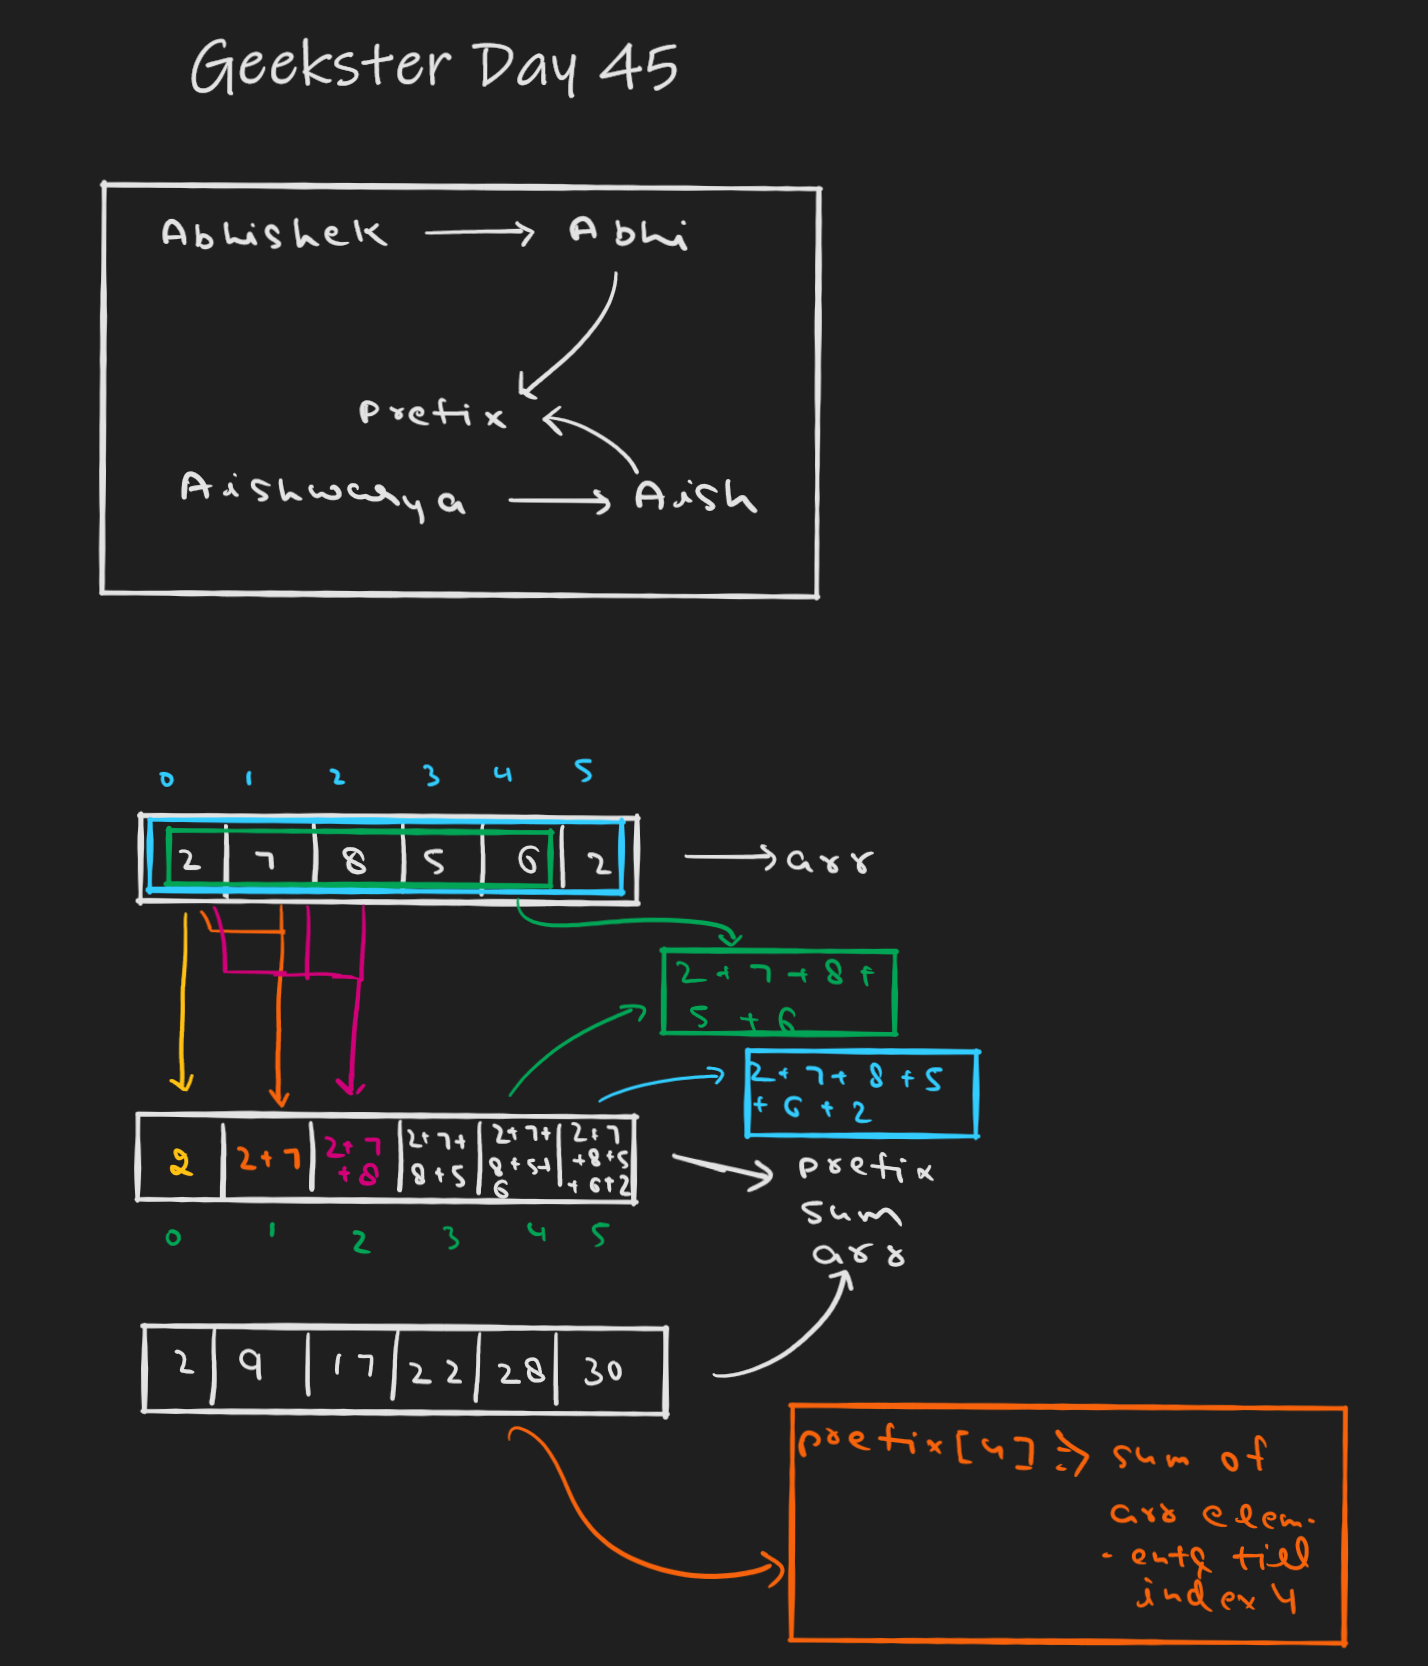 Geekster Day 45
Abhishek → Abhi
Prefix
Aishwarya → Aish
0 1 2 3 4 5
2 7 8 5 6 2 → arr
2 + 7 + 8 +
5 + 6
2 + 7 + 8 + 5
+ 6 + 2
2
2+7
2+7
+8
2+7+
8+5
2+7+
8+5+
6
2+7
+8+5
+6+2
prefix
sum
arr
0 1 2 3 4 5
2 9 17 22 28 30
prefix[4] => sum of
arr elem-
-ents till
index 4